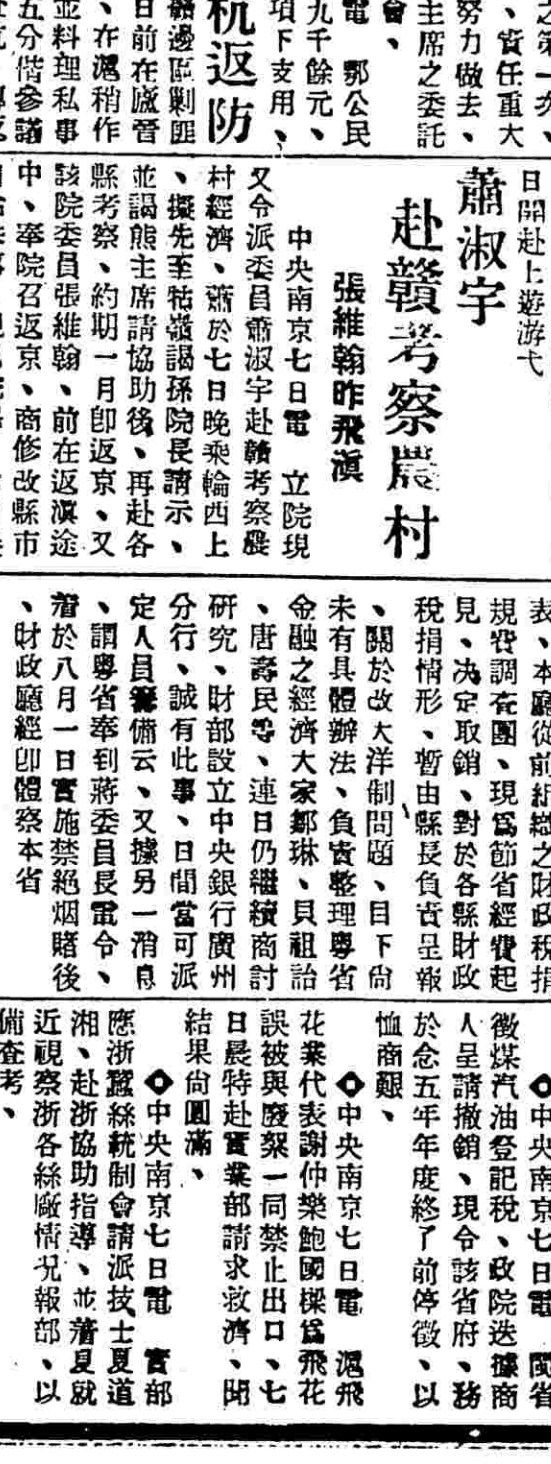 之第一次、
、責任重大
努力做去、
主席之委託
會、
電　鄂公民
九千餘元、
項下支用、
杭返防
贛邊區剿匪
日前在廬晉
、在滬稍作
並料理私事
五分偕參議
日開赴上遊游弋
蕭淑宇
赴贛考察農村
張維翰昨飛滇
中央南京七日電　立院現
又令派委員蕭淑宇赴贛考察農
村經濟、蕭於七日晚乘輪西上
、擬先至牯嶺謁孫院長請示、
並謁熊主席請協助後、再赴各
縣考察、約期一月卽返京、又
該院委員張維翰、前在返滇途
中、奉院召返京、商修改縣市
表、本廳從前組織之財政稅捐
規費調查團、現爲節省經費起
見、決定取銷、對於各縣財政
稅捐情形、暫由縣長負責呈報
、關於改大洋制問題、目下尙
未有具體辦法、負責整理粵省
金融之經濟大家鄒琳、貝祖詒
、唐壽民等、連日仍繼續商討
研究、財部設立中央銀行廣州
分行、誠有此事、日間當可派
定人員籌備云、又據另一消息
、謂粵省奉到蔣委員長電令、
着於八月一日實施禁絕烟賭後
、財政廳經卽體察本省
◎中央南京七日電　閩省
徵煤汽油登記稅、政院迭據商
人呈請撤銷、現令該省府、務
於念五年年度終了前停徵、以
恤商艱、
◎中央南京七日電　滬飛
花業代表謝仲樂鮑國樑爲飛花
誤被與廢絮一同禁止出口、七
日晨特赴實業部請求救濟、聞
結果尙圓滿、
◎中央南京七日電　實部
應浙蠶絲統制會請派技士夏道
湘、赴浙協助指導、並着夏就
近視察浙各絲廠情况報部、以
備查考、